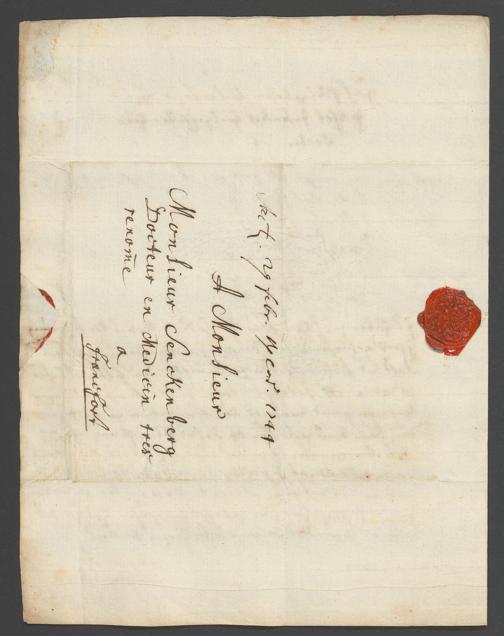 29 febr. 1744
A Monsieur
Monsieur Senckenberg
Docteur en Medicin tres
renom̄e
a
francfort